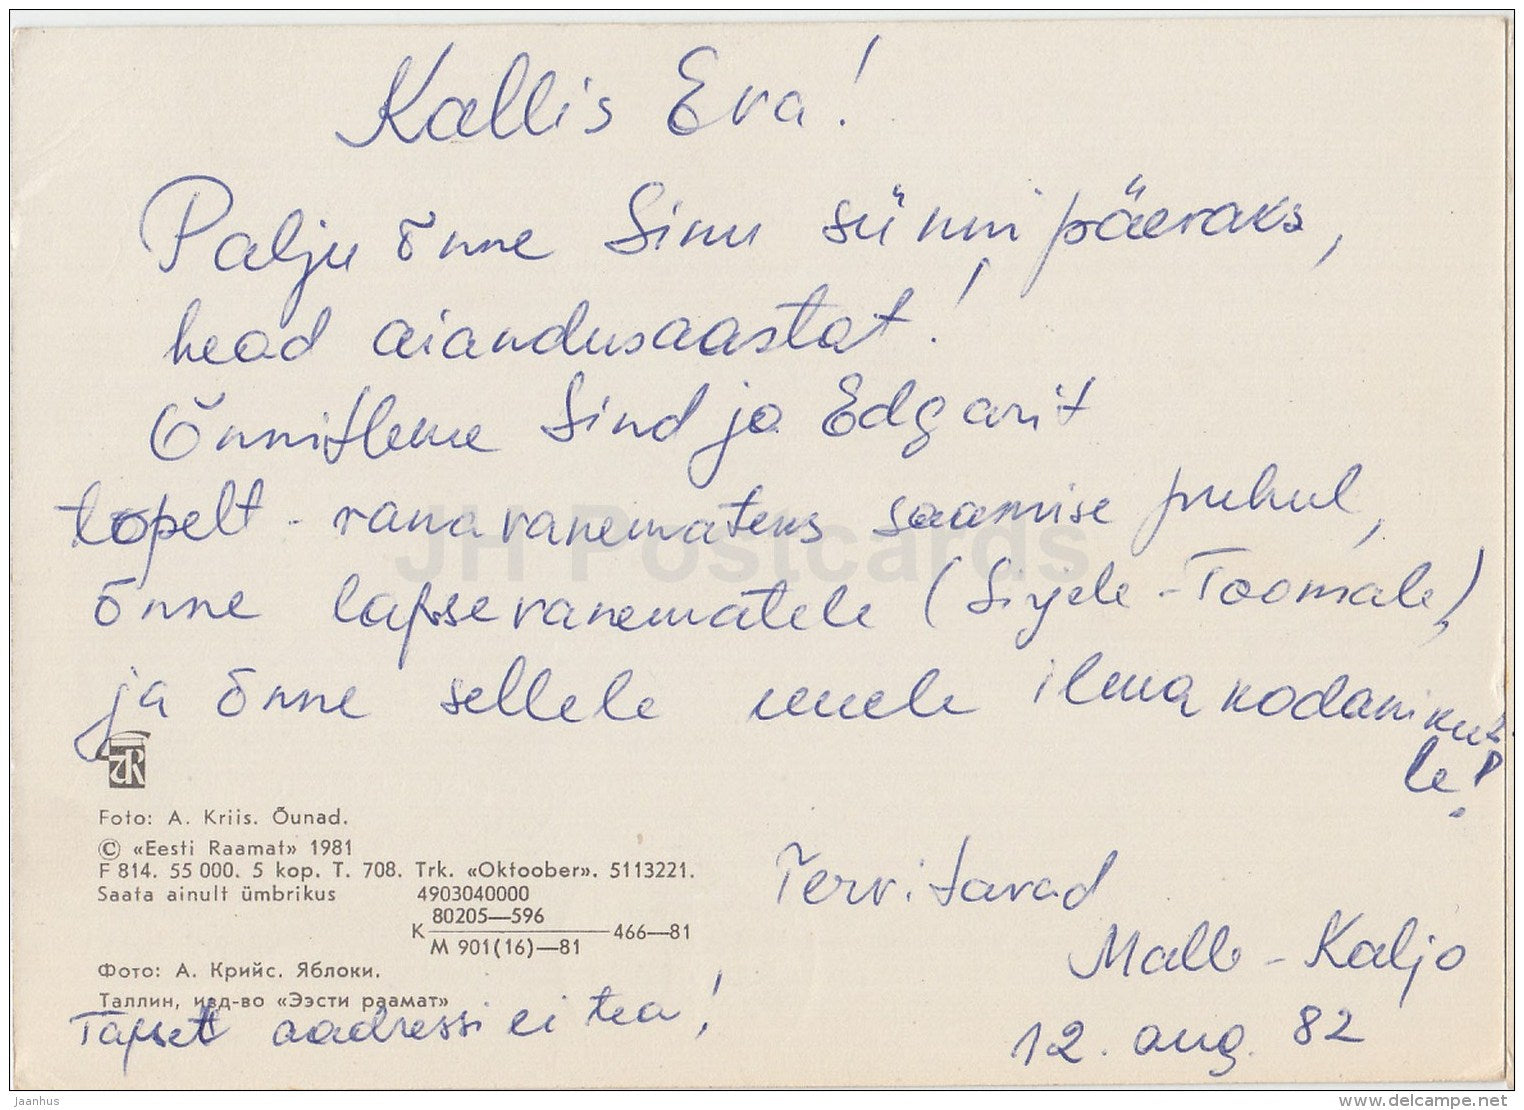 Kallis Eva!
Palju õnne Sinu sünnipäevaks,
head aiandusaastat!
Õnnitleme Sind ja Edgarit
topelt - vanavanemateks saamise puhul,
õnne lapsevanematele (Sirjele - Toomale)
ja õnne sellele uuele ilmakodaniku
le!
Foto: A. Kriis. Õunad.
© «Eesti Raamat» 1981
F 814. 55 000. 5 kop. T. 708. Trk. «Oktoober». 5113221.
Saata ainult ümbrikus 4903040000
К 80205—596
М 901(16)—81 466—81
Фото: А. Крийс. Яблоки.
Таллин, изд-во «Ээсти раамат»
Tervitavad
Malle - Kaljo
12. aug. 82
Täpset aadressi ei tea!
JH Postcards
jaanhus
www.delcampe.net